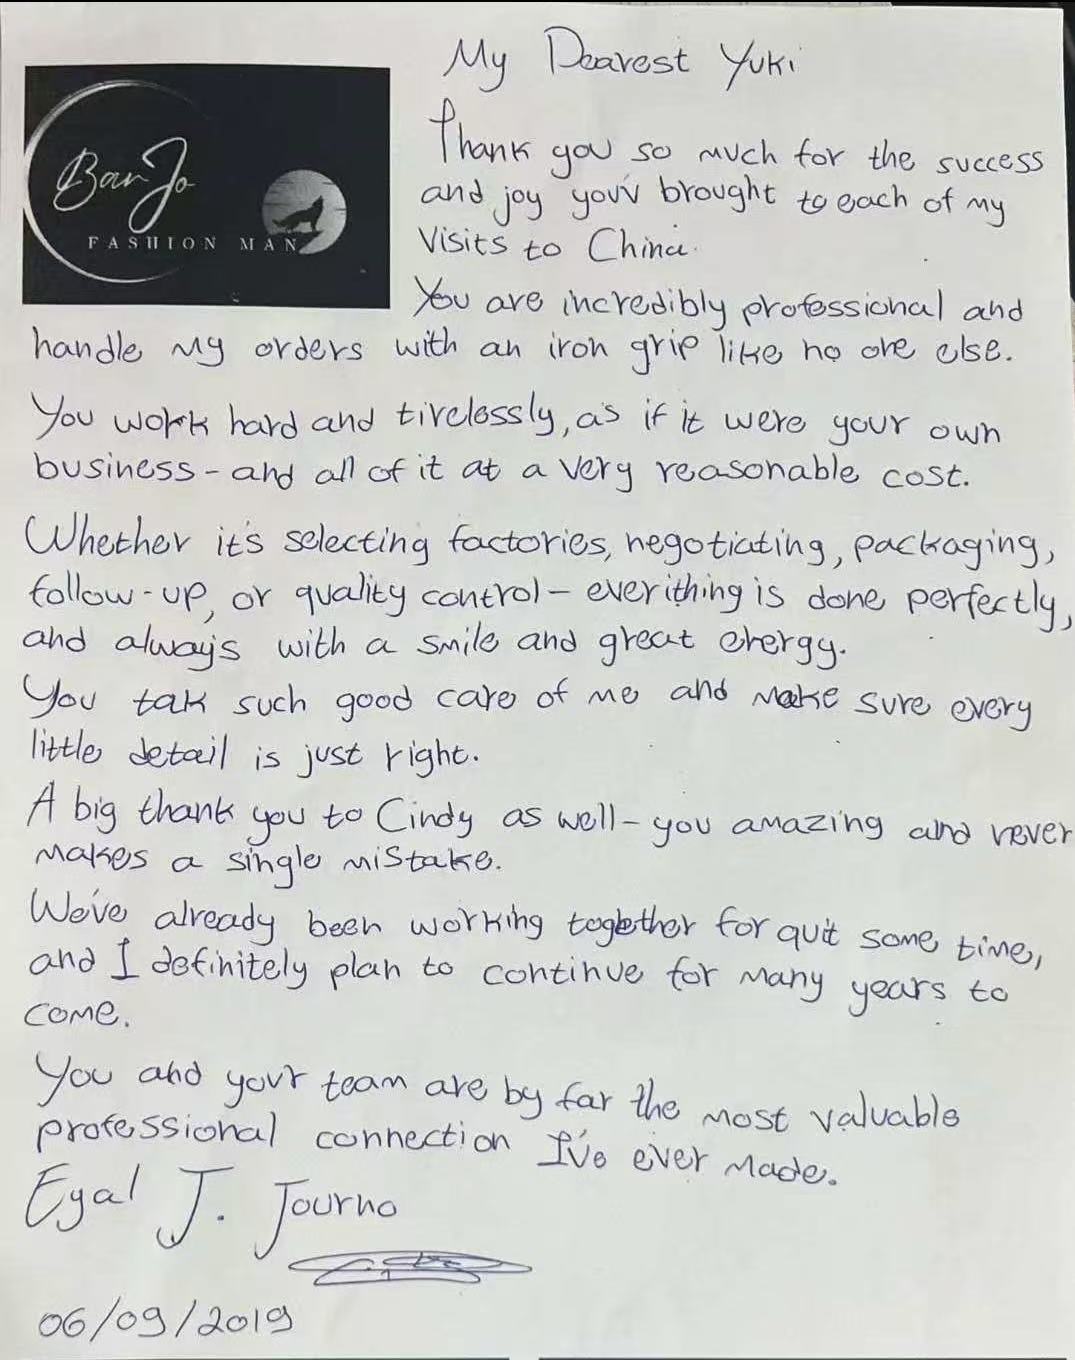 My Dearest Yuki
BanJo
FASHION MAN
Thank you so much for the success
and joy you'v brought to each of my
Visits to China.
You are incredibly professional and
handle my orders with an iron grip like no one else.
You work hard and tirelessly, as if it were your own
business - and all of it at a very reasonable cost.
Whether it's selecting factories, negotiating, packaging,
follow-up, or quality control - everithing is done perfectly,
and always with a smile and great energy.
You tak such good care of me and make sure every
little detail is just right.
A big thank you to Cindy as well - you amazing and never
makes a single mistake.
We've already been working together for quit some time,
and I definitely plan to continue for many years to
come.
You and your team are by far the most valuable
professional connection I've ever made.
Eyal J. Journo
06/09/2019